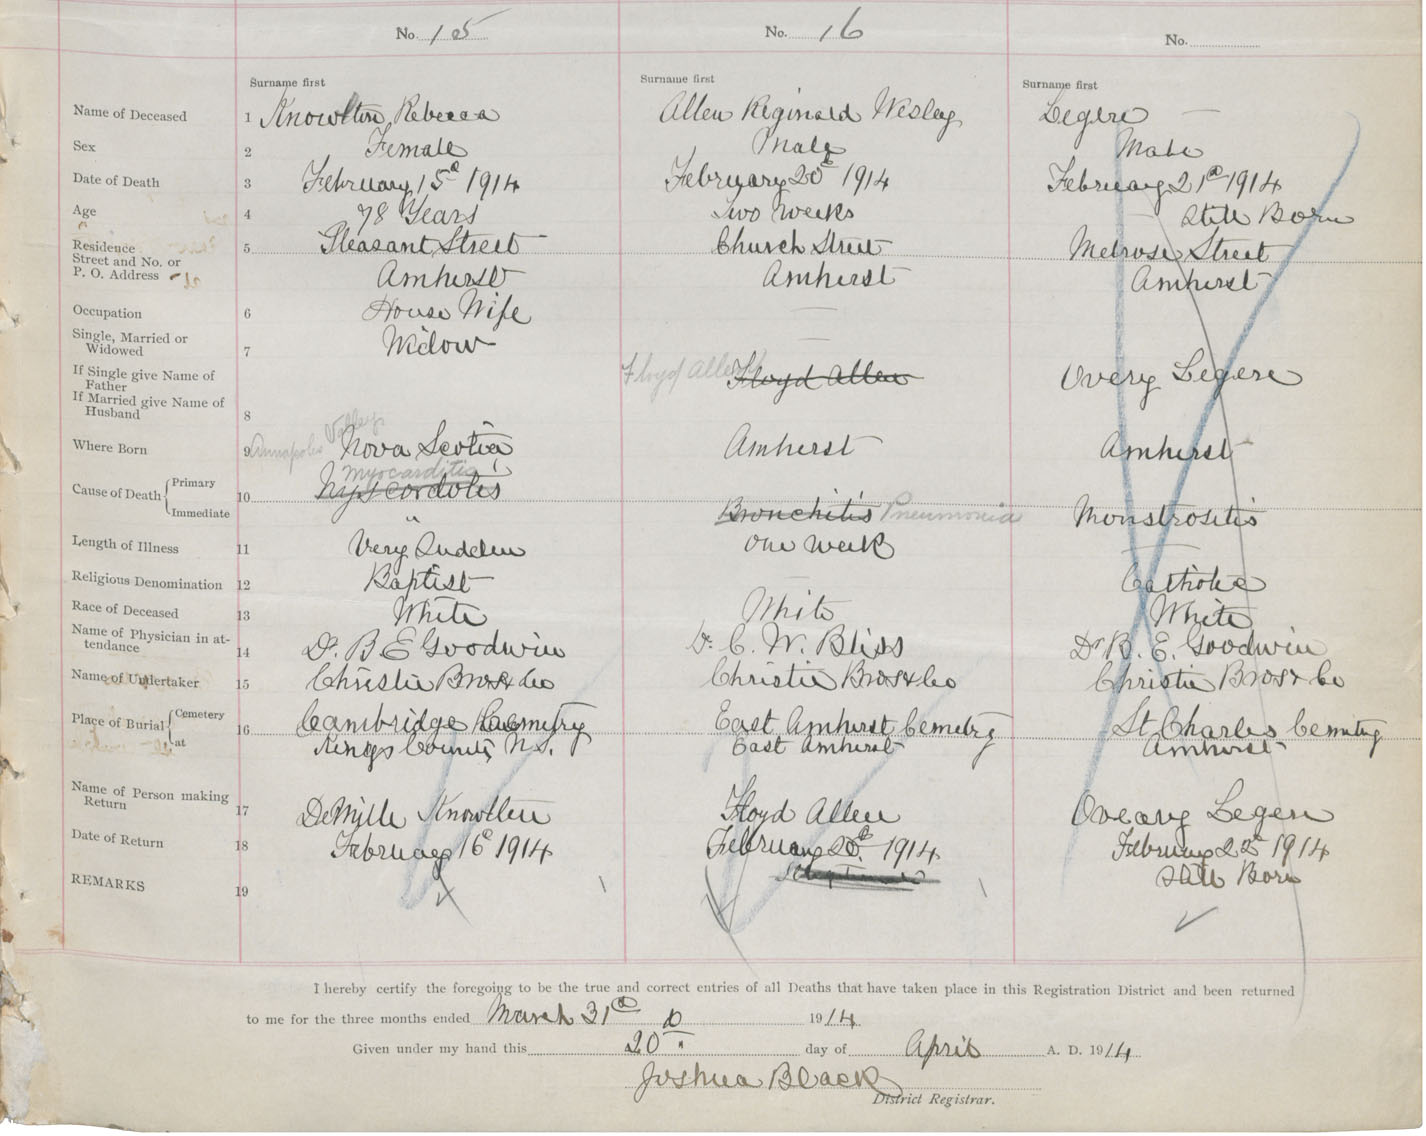 No. 15 No. 16 No.
Surname first Surname first Surname first
Name of Deceased 1 Knowlton, Rebecca Allen Reginald Wesley Legere —
Sex 2 Female Male Male
Date of Death 3 February 15th 1914 February 20th 1914 February 21st 1914
Age 4 78 Years Two Weeks Still Born
Residence Street and No. or P. O. Address 5 Pleasant Street Church Street Melrose Street
Amherst Amherst Amherst
Occupation 6 House Wife —
Single, Married or Widowed 7 Widow —
If Single give Name of Father Floyd Allen Floyd Allen Overy Legere
If Married give Name of Husband 8
Where Born 9 Annapolis Valley Nova Scotia Amherst Amherst
Cause of Death Primary 10 myocarditis
Immediate " Bronchitis Pneumonia Monstrositis
Length of Illness 11 Very Sudden One Week —
Religious Denomination 12 Baptist — Catholic
Race of Deceased 13 White White White
Name of Physician in attendance 14 Dr. B. E Goodwin Dr. C. W. Bliss Dr B. E. Goodwin
Name of Undertaker 15 Christie Bros & Co Christie Bros & Co Christie Bros & Co
Place of Burial Cemetery 16 Cambridge Cemetry East Amherst Cemetry St Charles Cemetry
at Kings County N.S. East Amherst Amherst
Name of Person making Return 17 DeMille Knowlton Floyd Allen Oveary Legere
Date of Return 18 February 16th 1914 February 20th 1914 February 22nd 1914
REMARKS 19 Still Born
I hereby certify the foregoing to be the true and correct entries of all Deaths that have taken place in this Registration District and been returned
to me for the three months ended March 31st 1914
Given under my hand this 20th day of April A. D. 1914
Joshua Black
District Registrar.